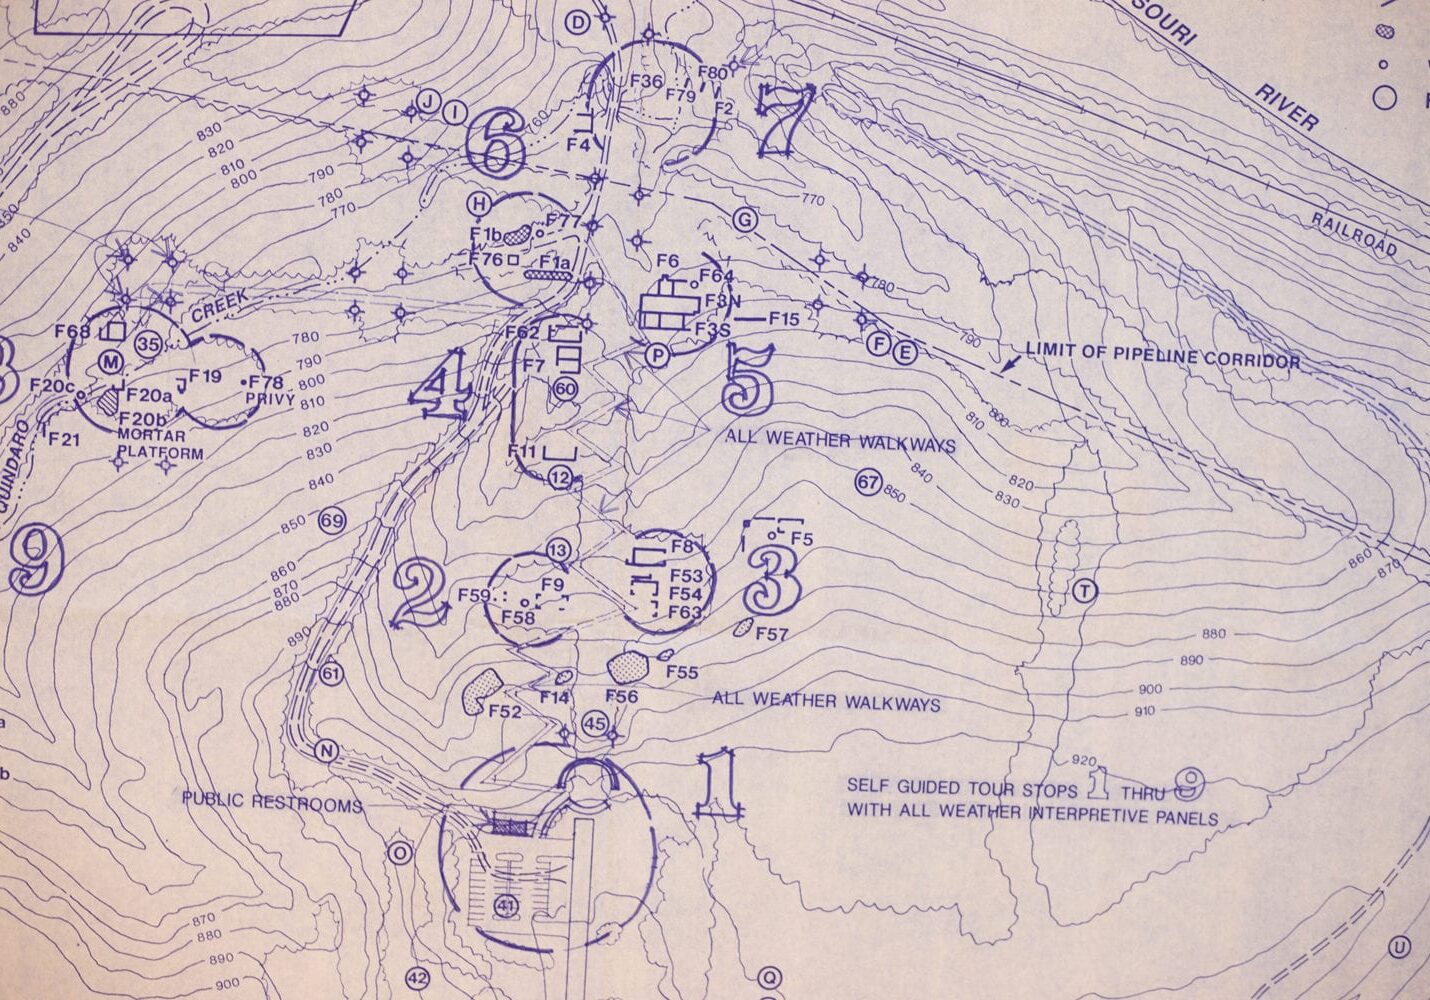 SOURI
RIVER
RAILROAD
D
F36
F80
F79
F2
7
J
I
6
160
F4
880
830
820
810
800
790
780
770
770
H
F77
F1b
F76
F1a
G
850
840
F6
F64
F3N
F3S
F15
780
790
F
E
LIMIT OF PIPELINE CORRIDOR
CREEK
F68
35
M
F62
F7
60
P
5
4
780
790
800
810
820
830
840
850
860
870
880
890
F20c
F20a
F19
F78
PRIVY
F20b
MORTAR
PLATFORM
F21
QUINDARO
9
F11
12
ALL WEATHER WALKWAYS
800
810
820
830
840
850
67
69
860
870
13
F8
F53
F54
F63
F5
3
2
F59
F9
F58
F57
T
880
890
900
910
920
61
F52
F14
F55
F56
45
ALL WEATHER WALKWAYS
N
1
PUBLIC RESTROOMS
SELF GUIDED TOUR STOPS 1 THRU 9
WITH ALL WEATHER INTERPRETIVE PANELS
O
41
870
880
890
900
42
Q
U
a
b